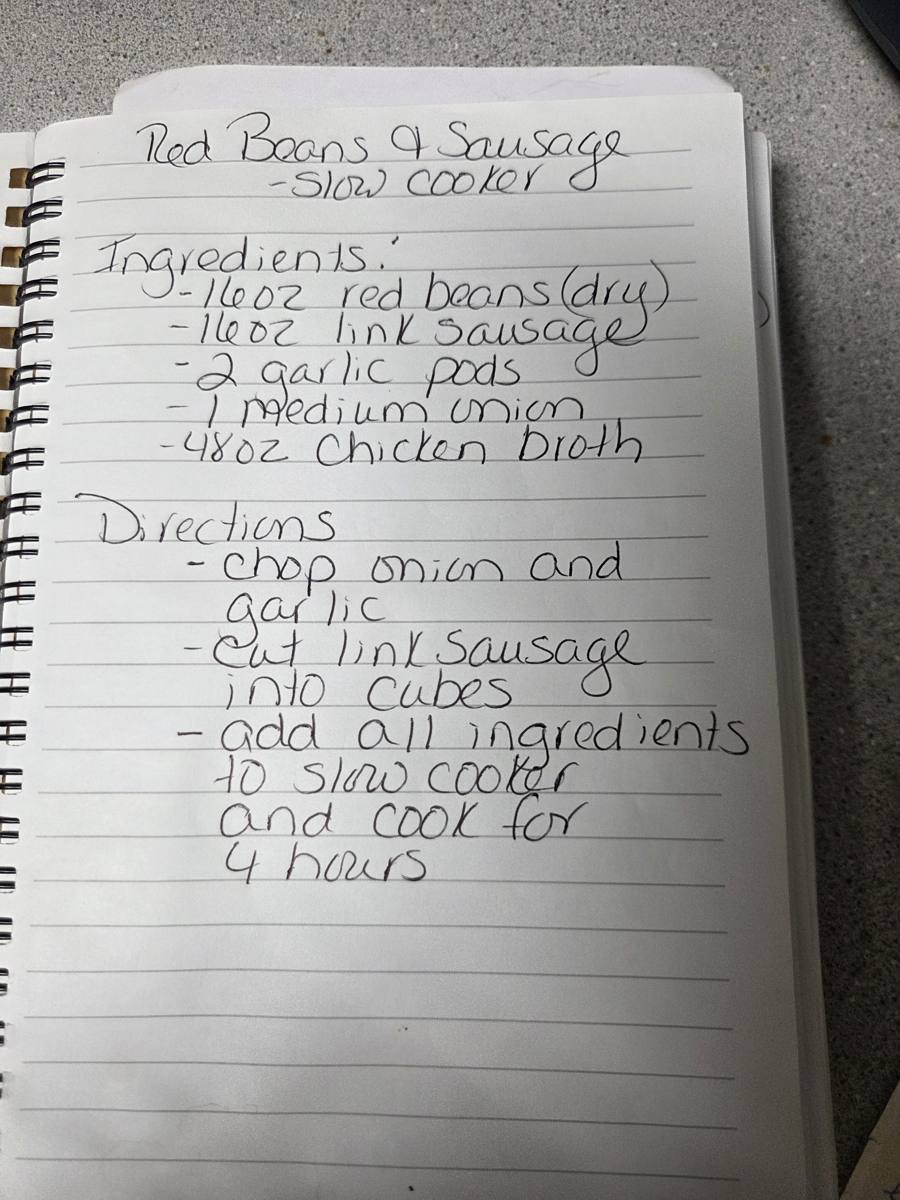 Red Beans & Sausage
-Slow cooker
Ingredients:
-16oz red beans (dry)
-16oz link sausage
-2 garlic pods
-1 medium onion
-48oz Chicken broth
Directions
- chop onion and
garlic
- cut link sausage
into cubes
- add all ingredients
to slow cooker
and cook for
4 hours